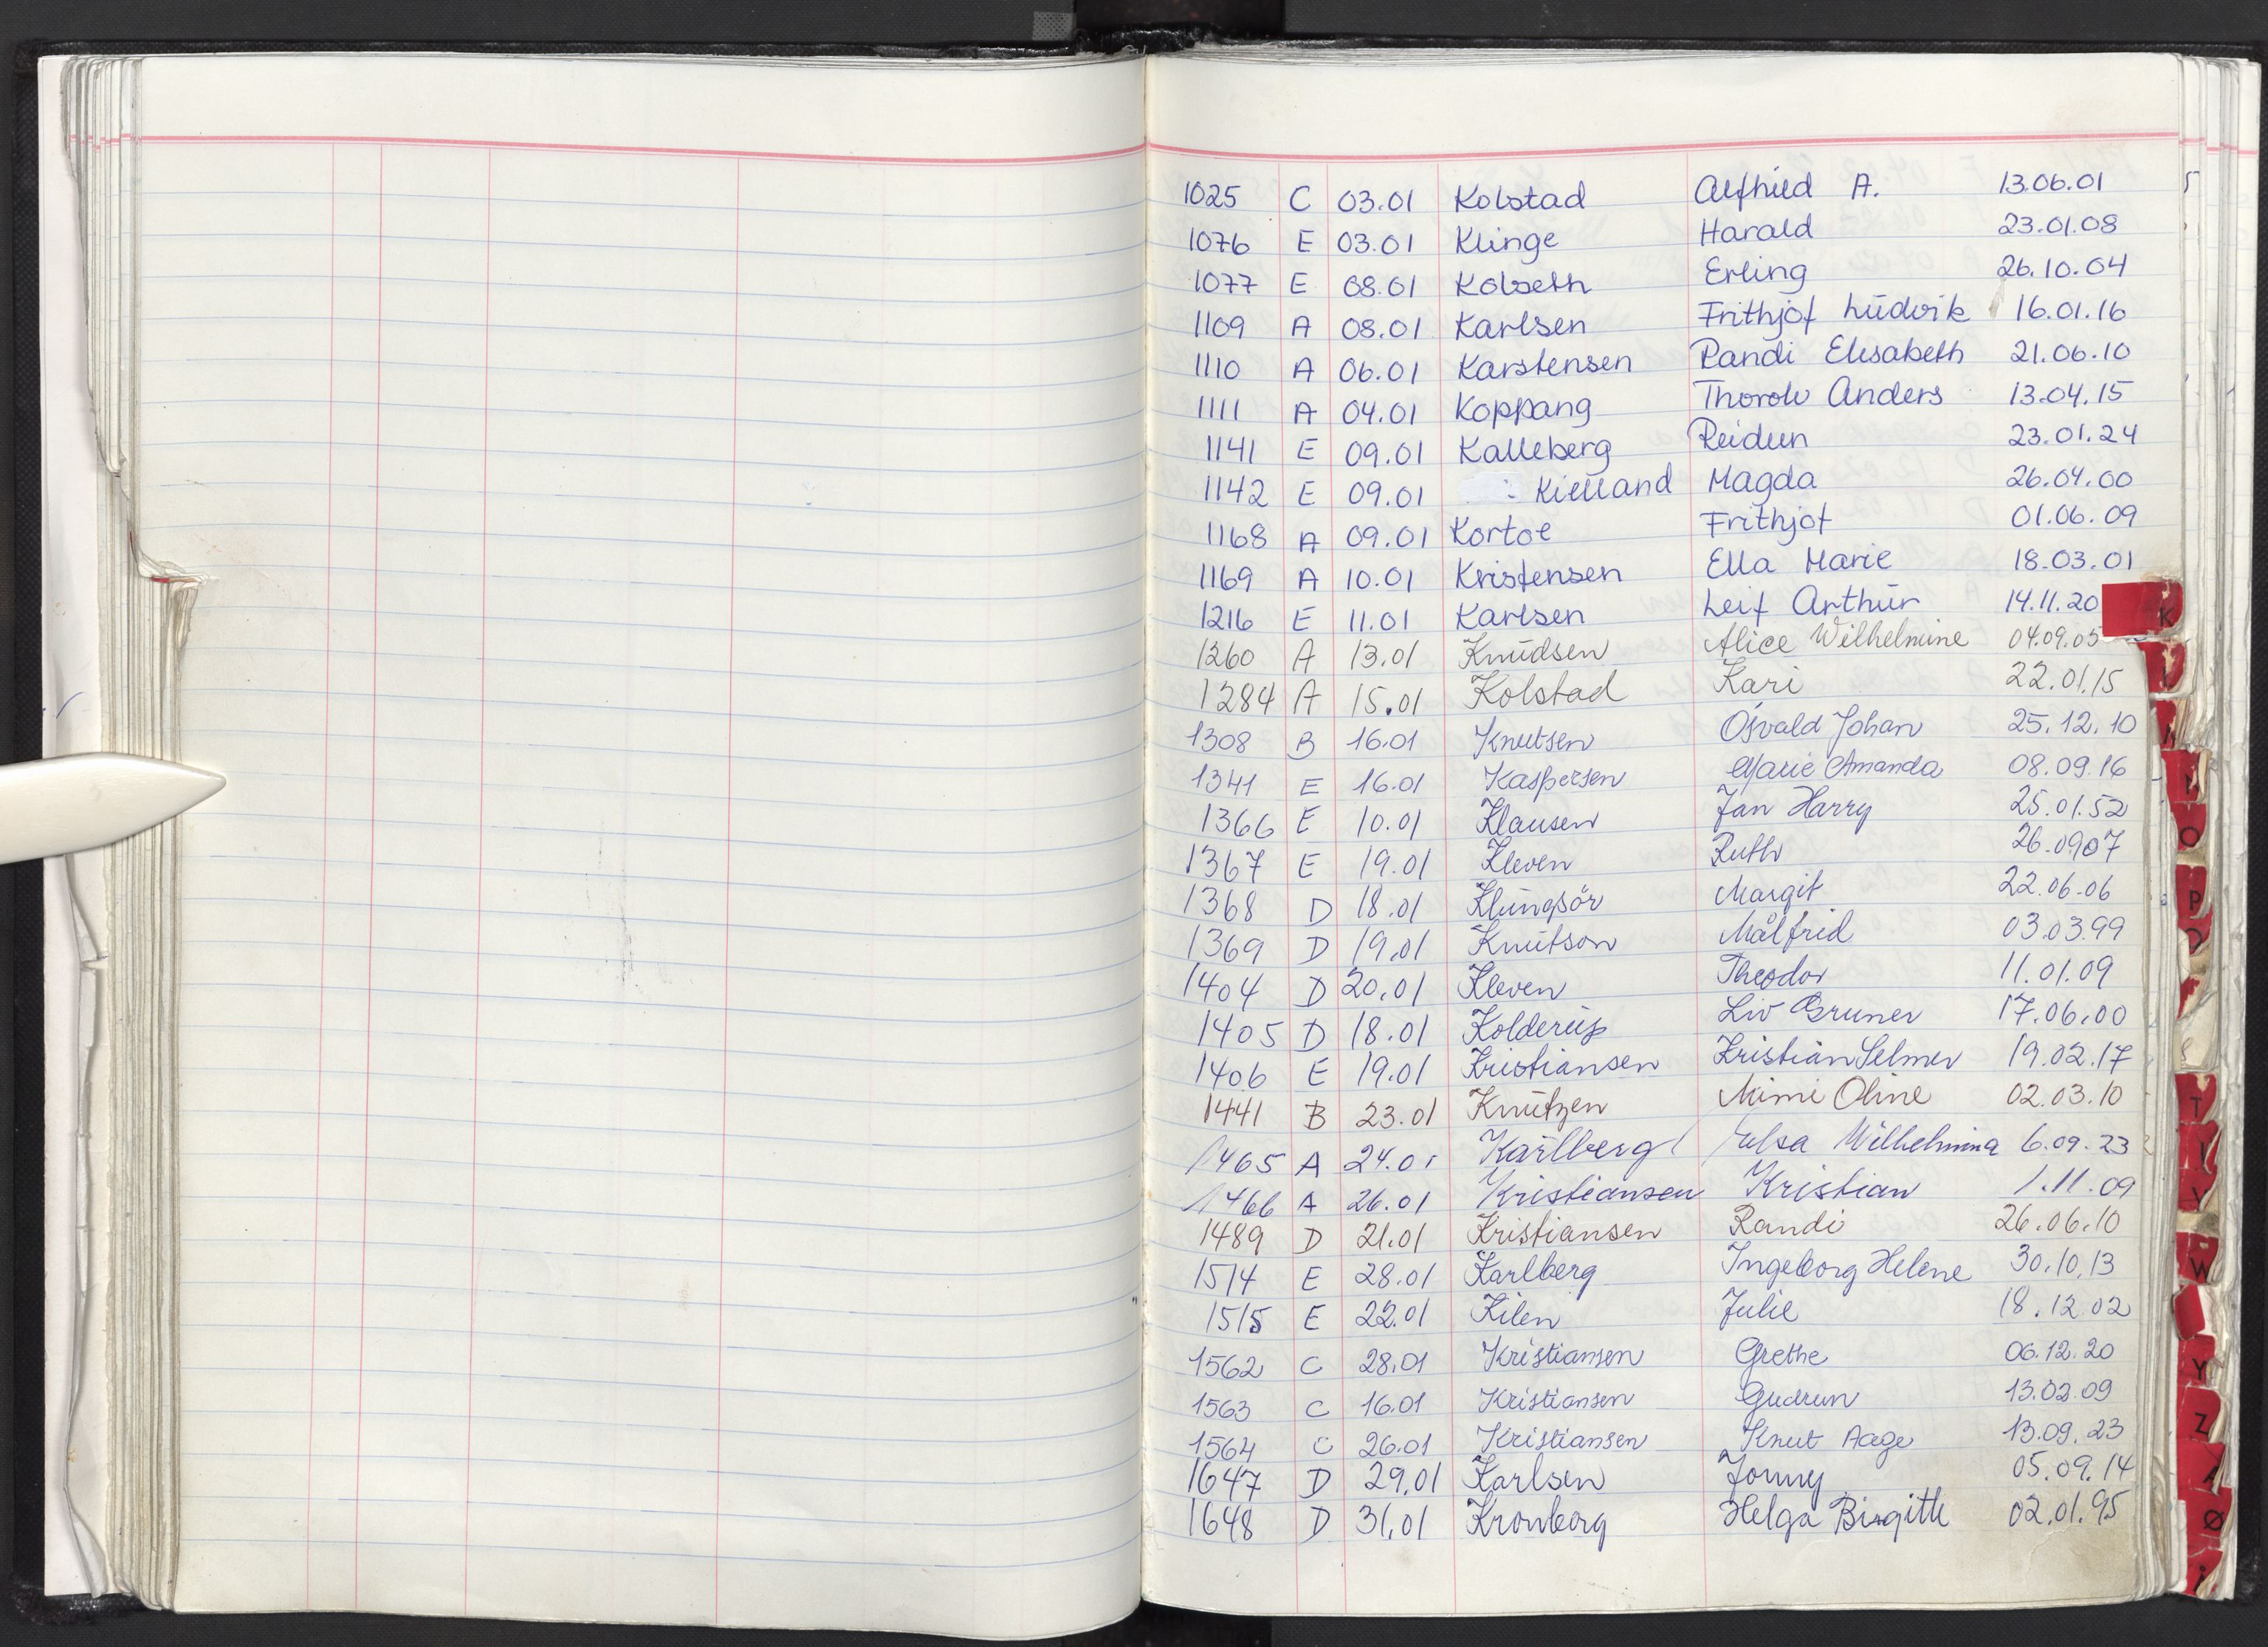 1025 C 03.01 Kolstad Alfhild A. 13.06.01
1076 E 03.01 Klinge Harald 23.01.08
1077 E 08.01 Kolseth Erling 26.10.04
1109 A 08.01 Karlsen Frithjof Ludvik 16.01.16
1110 A 06.01 Karstensen Randi Elisabeth 21.06.10
1111 A 04.01 Koppang Thorolv Anders 13.04.15
1141 E 09.01 Kalleberg Reidun 23.01.24
1142 E 09.01 Kielland Magda 26.04.00
1168 A 09.01 Kortoe Frithjof 01.06.09
1169 A 10.01 Kristensen Ella Marie 18.03.01
1216 E 11.01 Karlsen Leif Arthur 14.11.20
K
1260 A 13.01 Knudsen Alice Wilhelmine 04.09.05
1284 A 15.01 Kolstad Kari 22.01.15
1308 B 16.01 Knutsen Osvald Johan 25.12.10
1341 E 16.01 Kaspersen Marie Amanda 08.09.16
1366 E 10.01 Klausen Jan Harry 25.01.52
O
1367 E 19.01 Kleven Ruth 26.0907
1368 D 18.01 Klungsör Margit 22.06.06
P
1369 D 19.01 Knutson Målfrid 03.03.99
1404 D 20.01 Kleven Theodor 11.01.09
1405 D 18.01 Kolderup Liv Gruner 17.06.00
1406 E 19.01 Kristiansen Kristian Selmer 19.02.17
1441 B 23.01 Knutzen Mimi Oline 02.03.10
T
1465 A 24.01 Karlberg Elsa Wilhelmina 6.09.23
1466 A 26.01 Kristiansen Kristian 1.11.09
1489 D 21.01 Kristiansen Randi 26.06.10
1514 E 28.01 Karlberg Ingeborg Helene 30.10.13
W
1515 E 22.01 Kilen Julie 18.12.02
1562 C 28.01 Kristiansen Grethe 06.12.20
Y
1563 C 16.01 Kristiansen Gudrun 13.02.09
1564 C 26.01 Kristiansen Knut Aage 13.09.23
Z
1647 D 29.01 Karlsen Jonny 05.09.14
1648 D 31.01 Kronborg Helga Birgitte 02.01.95
Ø